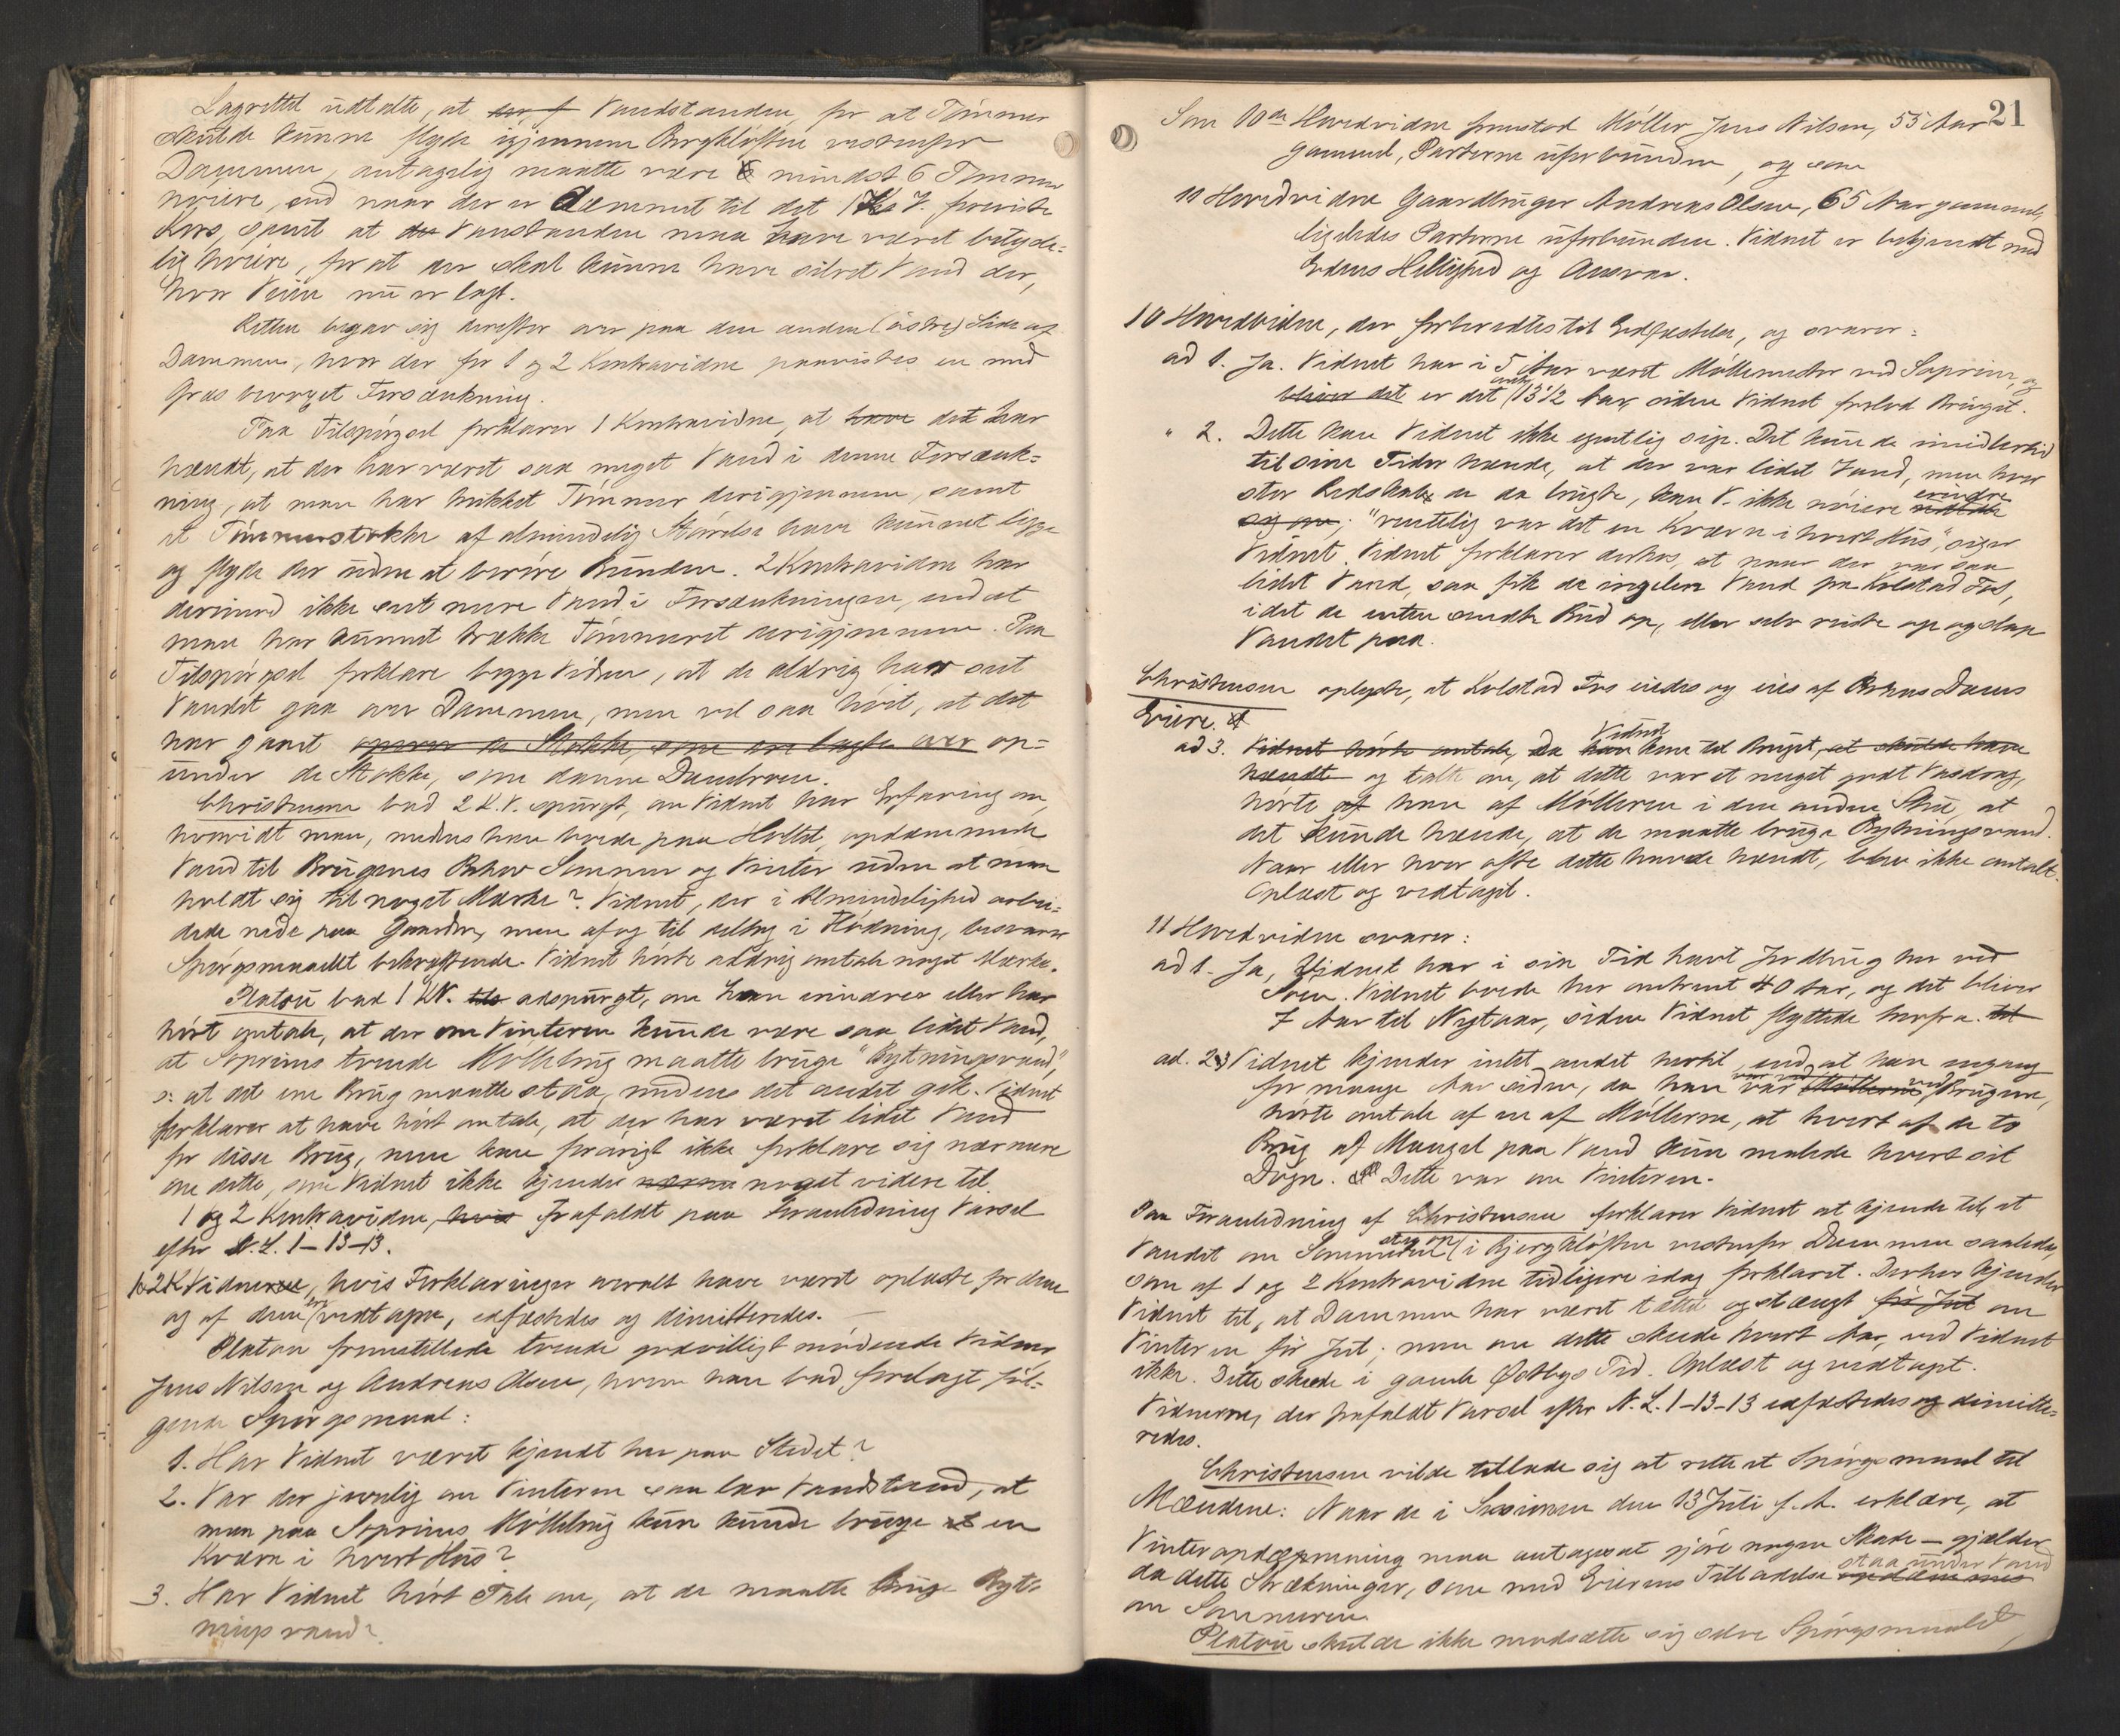 Lagrettet udtalte, at Vandstanden, for at Tømmer
skulde kunne flyde igjennem Bergkløften vestenfor
Dammen, antagelig maatte være mindst 6 Tommer
høiere, end naar der er dæmmet til det 1 K. V. foreviste
Kors, samt at Vandstanden maa have været betyde-
lig høiere, for at der skal kunne have silret Vand der,
hvor Veien nu er lagt.
Retten begav sig derefter over paa den anden (østre) Side af
Dammen, hvor der for 1 og 2 Kontravidne paavistes en med
Græs bevoxet Forsænkning.
Paa Tilspørgsel forklarer 1 Kontravidne, at have det har
hændt, at der har været saa meget Vand i denne Forsænk-
ning, at man har trukket Tømmer derigjennem, samt
at Tømmerstokke af almindelig Størrelse have kunnet ligge
og flyde der uden at berøre Bunden. 2 Kontravidne har
derimod ikke seet mere Vand i Forsænkningen, end at
man har kunnet trække Tømmeret derigjennem. Paa
Tilspørgsel forklare begge Vidner, at de aldrig have seet
Vandet gaa over Dammen, men vel saa høit, at det
har gaaet op-
under de Stokke, som danne Dambroen.
Christensen bad 2 K.V. spurgt, om Vidnet har Erfaring om,
hvorvidt man, medens han boede paa Holtet, opdæmmede
Vand til Brugenes Behov Sommer og Vinter uden at man
holdt sig til noget Mærke? Vidnet, der i Almindelighed arbei-
dede nede paa Gaarden, men af og til deltog i Flødning, besvarer
Spørgsmaalet bekræftende. Vidnet hørte aldrig omtale noget Mærke.
Platou bad 1 KV. adspurgt, om han erindrer eller har
hørt omtale, at der om Vinteren kunde være saa lidet Vand,
at Soprims tvende Møllebrug maatte bruge "Bytningsvand",
ɔ: at det ene Brug maatte staa, medens det andet gik. Vidnet
forklarer at have hørt omtale, at der har været lidet Vand
for disse Brug, men kan forøvrigt ikke forklare sig nærmere
om dette, som Vidnet ikke kjender noget videre til.
1 og 2 Kontravidne, frafaldt paa Foranledning Varsel
efter N. L. 1–13–13.
Vidnerne, hvis Forklaringer overalt have været oplæste for dem
og af dem ere vedtagne, edfæstedes og dimitteredes.
Platou fremstillede tvende godvilligt mødende Vidner,
Jens Nilsen og Andreas Olsen, hvem han bad forelagt føl-
gende Spørgsmaal:
1. Har Vidnet været kjendt her paa Stedet?
2. Var der jevnlig om Vinteren saa lav Vandstand, at
man paa Soprims Møllebrug kun kunde bruge en
Kværn i hvert Hus?
3. Har Vidnet hørt Tale om, at de maatte bruge Byt-
ningsvand?
21
Som 10de Hovedvidne fremstod Møller Jens Nilsen, 55 Aar
gammel, Parterne uforbunden, og som
11 Hovedvidne Gaardbruger Andreas Olsen, 65 Aar gammel,
ligeledes Parterne uforbunden. Vidnet er bekjendt med
Edens Hellighed og Ansvar.
10 Hovedvidne, der forberedtes til Edfæstelse, og svarer:
ad 1. Ja. Vidnet har i 5 Aar været Møllemester ved Soprim, og
er det omtr. 13½ Aar, siden Vidnet forlod Bruget.
" 2. Dette kan Vidnet ikke egentlig sige. Det kunde imidlertid
til sine Tider hænde, at der var lidet Vand, men hvor
stor Redskab der da brugte, kan V. ikke nøiere erindre
"rentelig var det en Kværn i hvert Hus", siger
Vidnet. Vidnet forklarer derhos, at naar der var saa
lidet Vand, saa fik de Vand fra Kolstad Fos,
idet de enten sendte Bud op, eller selv reiste op og slap
Vandet paa.
Christensen oplyste, at Kolstad Fos eiedes og eies af Dams
Eiere.
ad 3. Da Vidnet kom til Bruget,
og talte om, at dette var et meget godt Vasdrag,
hørte han af Mølleren i den anden Stue, at
det kunde hænde, at de maatte bruge Bytningsvand.
Naar eller hvor ofte dette havde hændt, blev ikke omtalt.
Oplæst og vedtaget.
11 Hovedvidne svarer:
ad 1. Ja, Vidnet har i sin Tid havt Jordbrug her ved
Vidnet boede her omtrent 40 Aar, og det bliver
7 Aar til Nytaar, siden Vidnet flyttede herfra.
ad. 2 3 Vidnet kjender intet andet hertil, end at han engang
for mange Aar siden, da han var ved Brugene,
hørte omtale af en af Møllerne, at hvert af de to
Brug af Mangel paa Vand kun malede hvert sit
Døgn. Dette var om Vinteren.
Paa Foranledning af Christensen forklarer Vidnet at kjende til, at
Vandet om Sommeren steg op i Bjergkløften vestenfor Dammen saaledes
som af 1 og 2 Kontravidne tidligere idag forklaret. Derhos kjender
Vidnet til, at Dammen har været tættet og stængt om
Vinteren før Jul; men om dette skede hvert Aar, ved Vidnet
ikke. Dette skede i gamle Østbys Tid. Oplæst og vedtaget.
Vidnerne, der frafaldt Varsel efter N. L. 1–13–13 edfæstedes og dimitte-
redes.
Christensen vilde tillade sig at rette et Spørgsmaal til
Mændene: Naar de i Sessionen den 13 Juli f. A. erklære, at
Vinteropdæmning maa antages at gjøre nogen Skade – gjælder
da dette Strækninger, som med Eierens Tilladelse staa under Vand
om Sommeren.
Platou skulde ikke modsætte sig selve Spørgsmaalet,